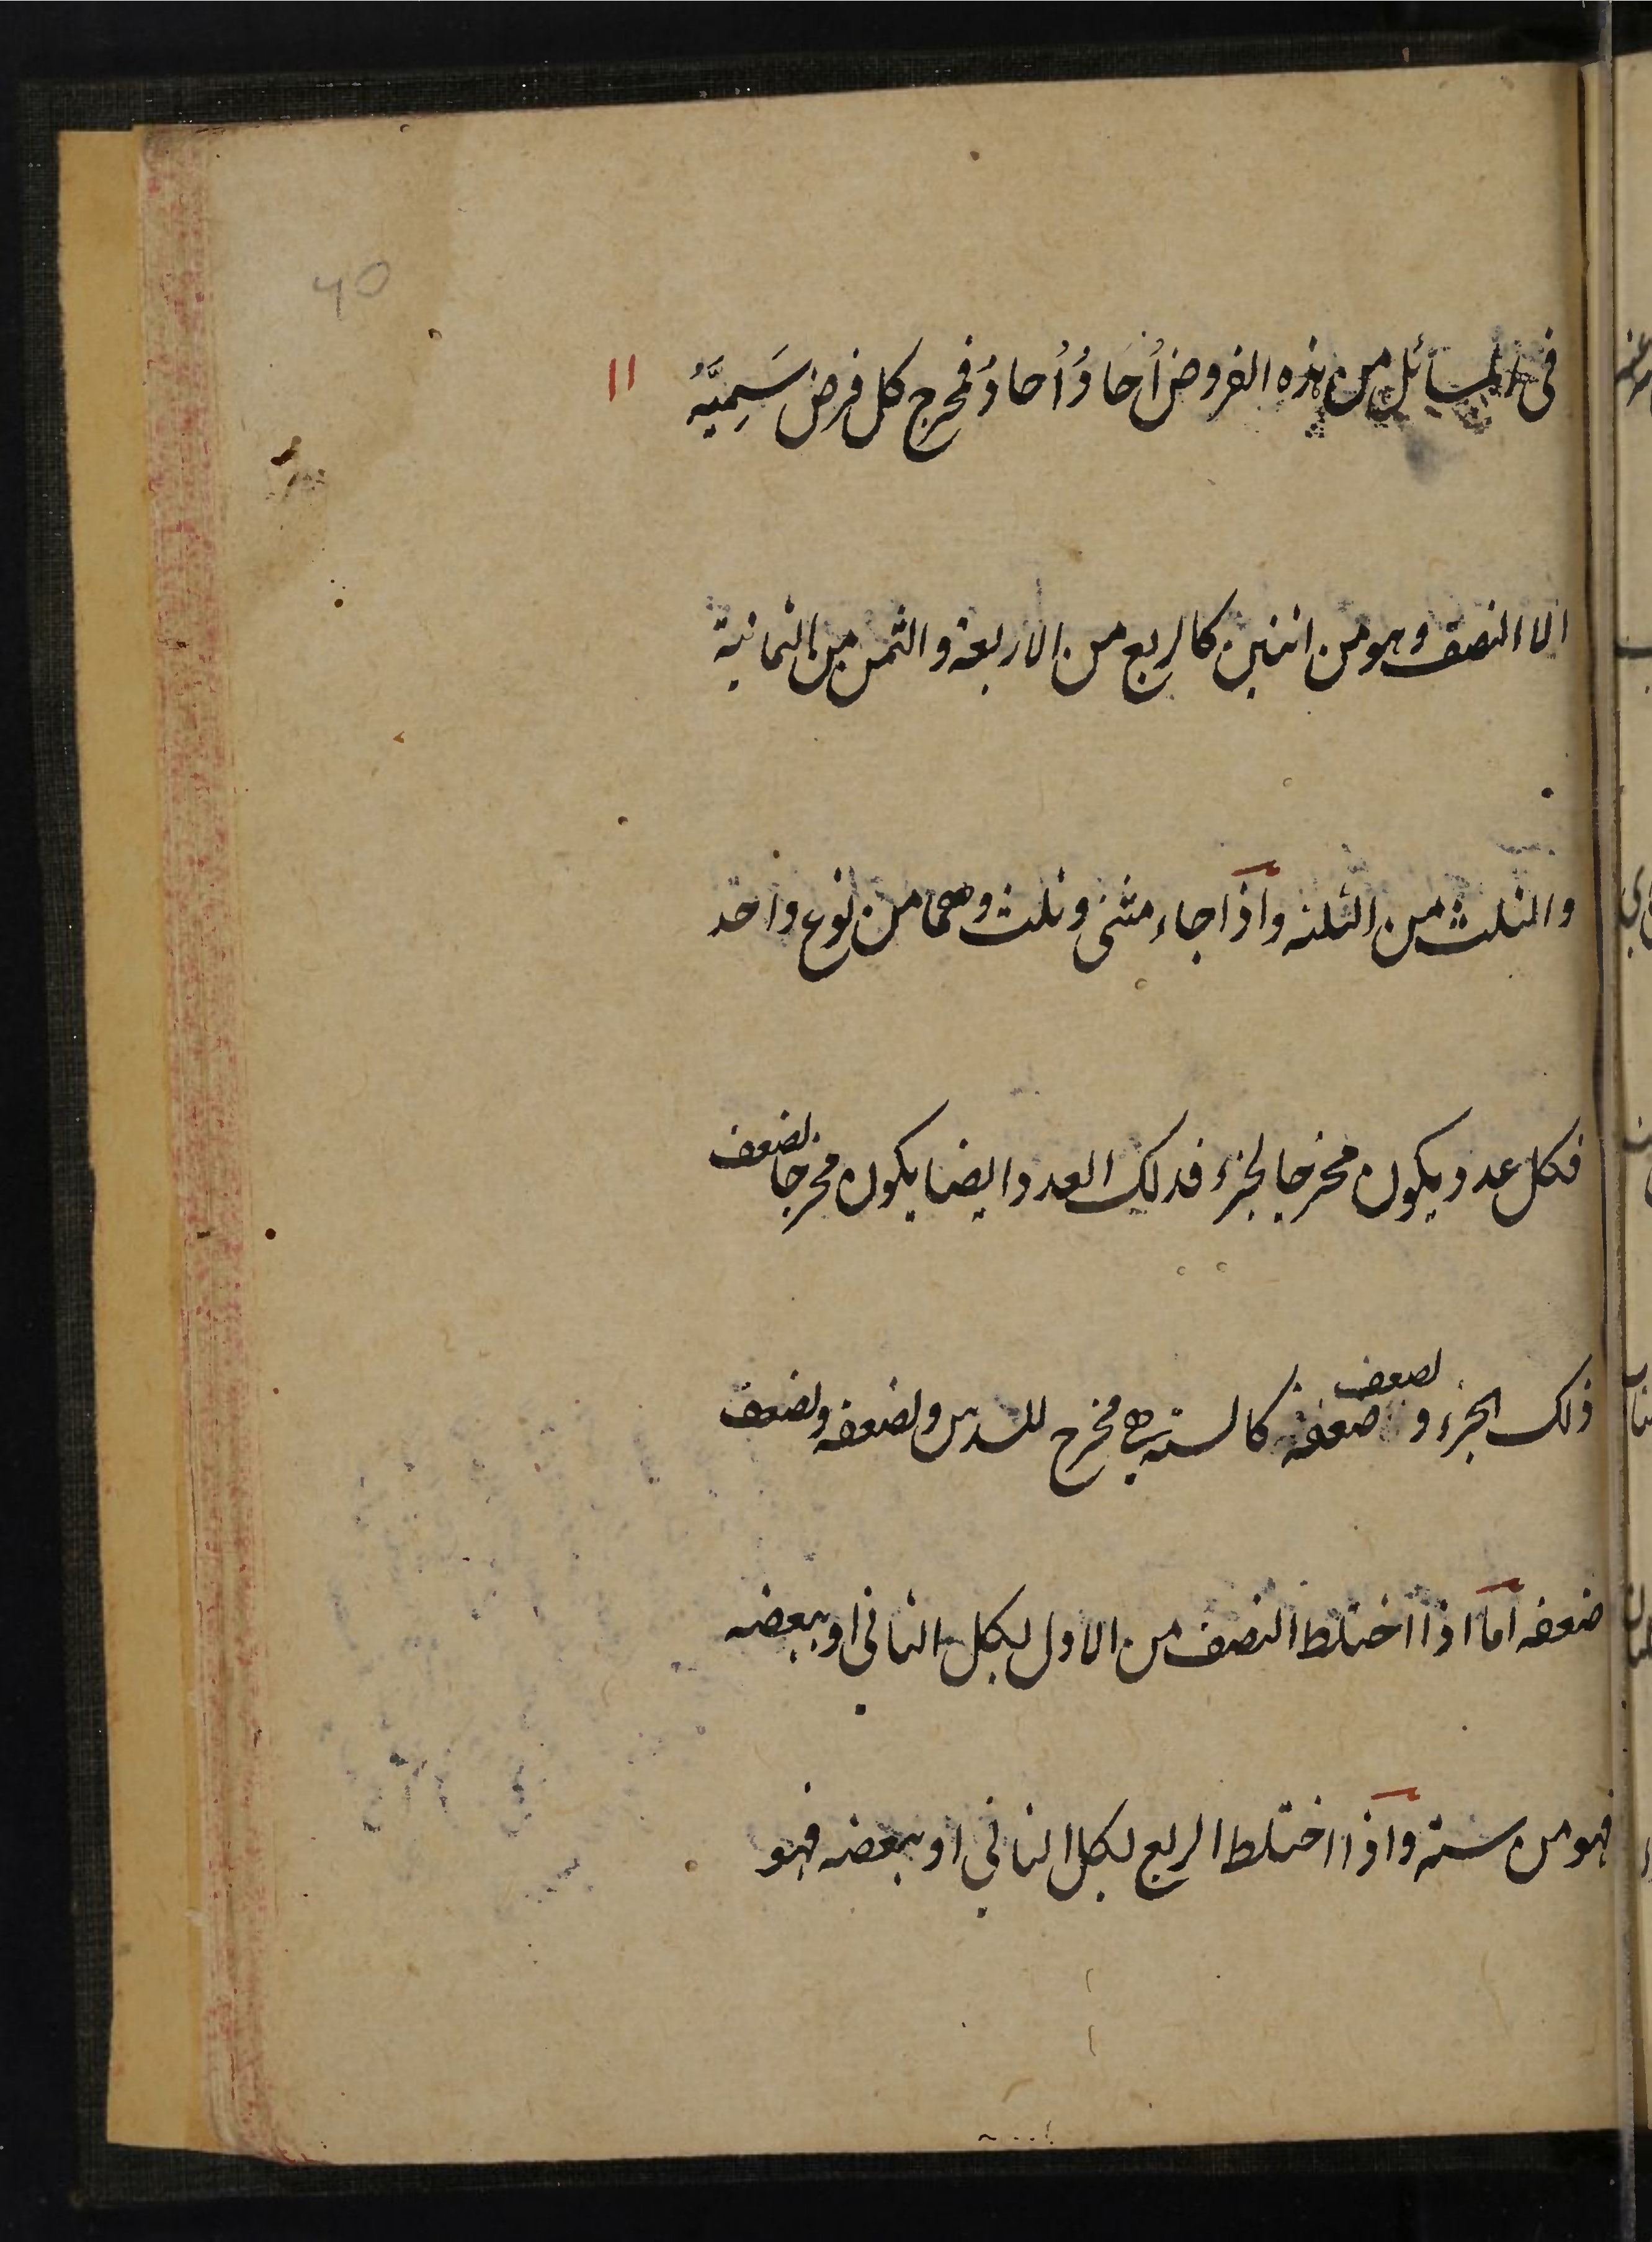 ١١
في المسائل من هذه الفروض أُحَادُ أُحادُ فمخرج كل فرض سَمِيَّهُ
الا النصف وهو من اثنين كالربع من الاربعة والثمن من الثمانية
والثلث من الثلثه واذا جاء مثنى وثلث وهما من نوع واحد
فكل عدد يكون مخرجا لجزء فذلك العدد ايضا يكون مخرجا لضعف
ذلك الجزء و لضعف ضعفه كالسته هي مخرج للسدس ولضعفه ولضعف
ضعفه اما اذا اختلط النصف من الاول بكل الثاني او ببعضه
فهو من سته واذا اختلط الربع بكل الثاني او ببعضه فهو